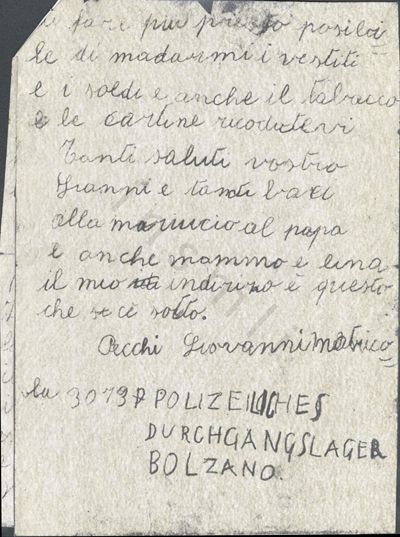 di fare piu presto posibi
le di madarmi i vestiti
e i soldi e anche il tabacco
e le cartine ricodatevi
Tanti saluti vostro
Gianni e tanti baci
alla al papa
e anche mammo e lina
il mio indirizo è questo
che se ci sotto.
Cecchi Giovanni Matrico
la 3079 POLIZEILICHES
DURCHGANGSLAGER
BOLZANO.